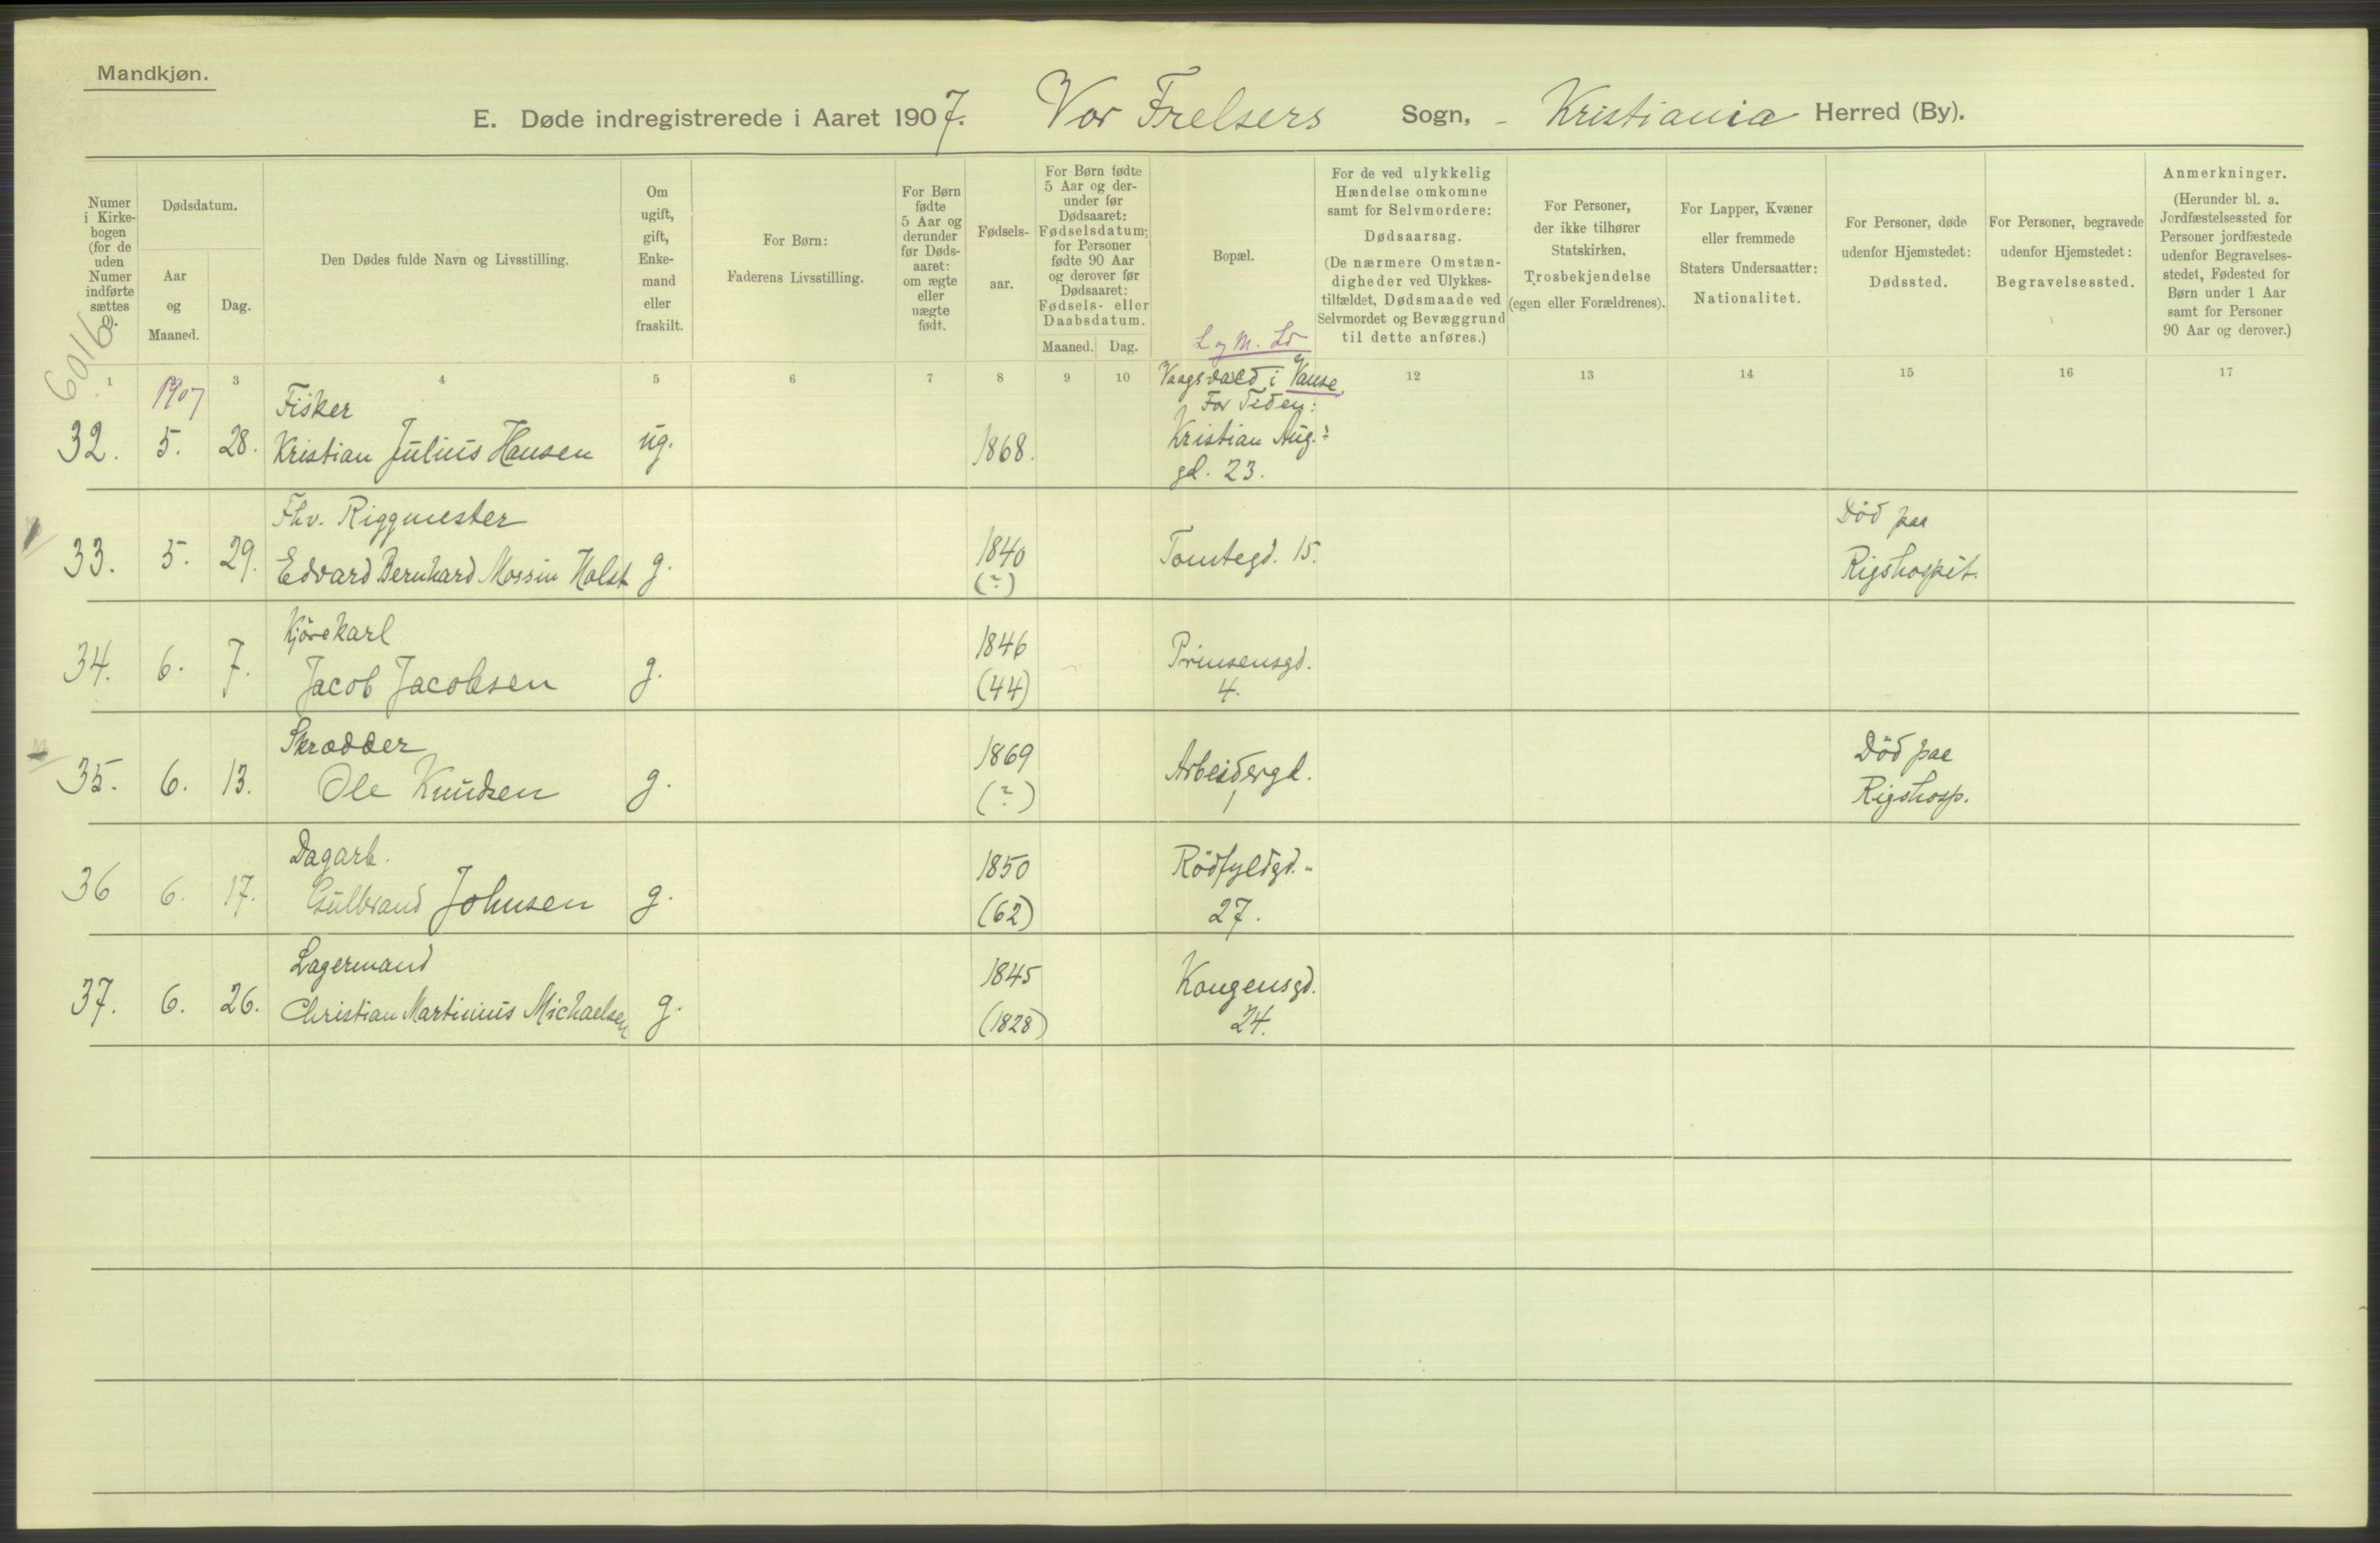 Mandkjøn.
E. Døde indregistrerede i Aaret 1907. Vor Frelsers Sogn, - Kristiania Herred (By).
Numer i Kirkebogen (for de uden Numer indførte sættes 0).
Dødsdatum.
Aar og Maaned.
Dag.
Den Dødes fulde Navn og Livsstilling.
Om ugift, gift, Enkemand eller fraskilt.
For Børn:
Faderens Livsstilling.
For Børn fødte 5 Aar og derunder før Dødsaaret: om ægte eller uægte født.
Fødselsaar.
For Børn fødte 5 Aar og derunder før Dødsaaret: Fødselsdatum; for Personer fødte 90 Aar og derover før Dødsaaret: Fødsels- eller Daabsdatum.
Maaned. Dag.
Bopæl.
For de ved ulykkelig Hændelse omkomne samt for Selvmordere:
Dødsaarsag.
(De nærmere Omstændigheder ved Ulykkestilfældet, Dødsmaade ved Selvmordet og Bevæggrund til dette anføres.)
For Personer, der ikke tilhører Statskirken,
Trosbekjendelse
(egen eller Forældrenes).
For Lapper, Kvæner eller fremmede Staters Undersaatter:
Nationalitet.
For Personer, døde udenfor Hjemstedet:
Dødssted.
For Personer, begravede udenfor Hjemstedet:
Begravelsessted.
Anmerkninger.
(Herunder bl. a. Jordfæstelsessted for Personer jordfæstede udenfor Begravelsesstedet, Fødested for Børn under 1 Aar samt for Personer 90 Aar og derover.)
6016
L og M. Ld
1 3 4 5 6 7 8 9 10 12 13 14 15 16 17
1907
Fisker
Vaagsvold i Vanse
For Tiden:
32. 5. 28. Kristian Julius Hansen ug. 1868. Kristian Aug.
gd. 23.
Fhv. Riggmester Død paa
33. 5. 29. Edvard Bernhard Mossin Holst g. 1840 Tomtegd. 15. Rigshospit.
(?)
Kjørekarl
34. 6. 7. Jacob Jacobsen g. 1846 Prinsensgd.
(44) 4.
Skrædder Død paa
35. 6. 13. Ole Knudsen g. 1869 Arbeidergd. Rigshosp.
(?) 1
Dagarb.
36 6. 17. Gulbrand Johnsen g. 1850 Rödfyldgd.
(62) 27.
Lagermand
37. 6. 26. Christian Martinius Michaelsen g. 1845 Kongensgd.
(1828) 24.